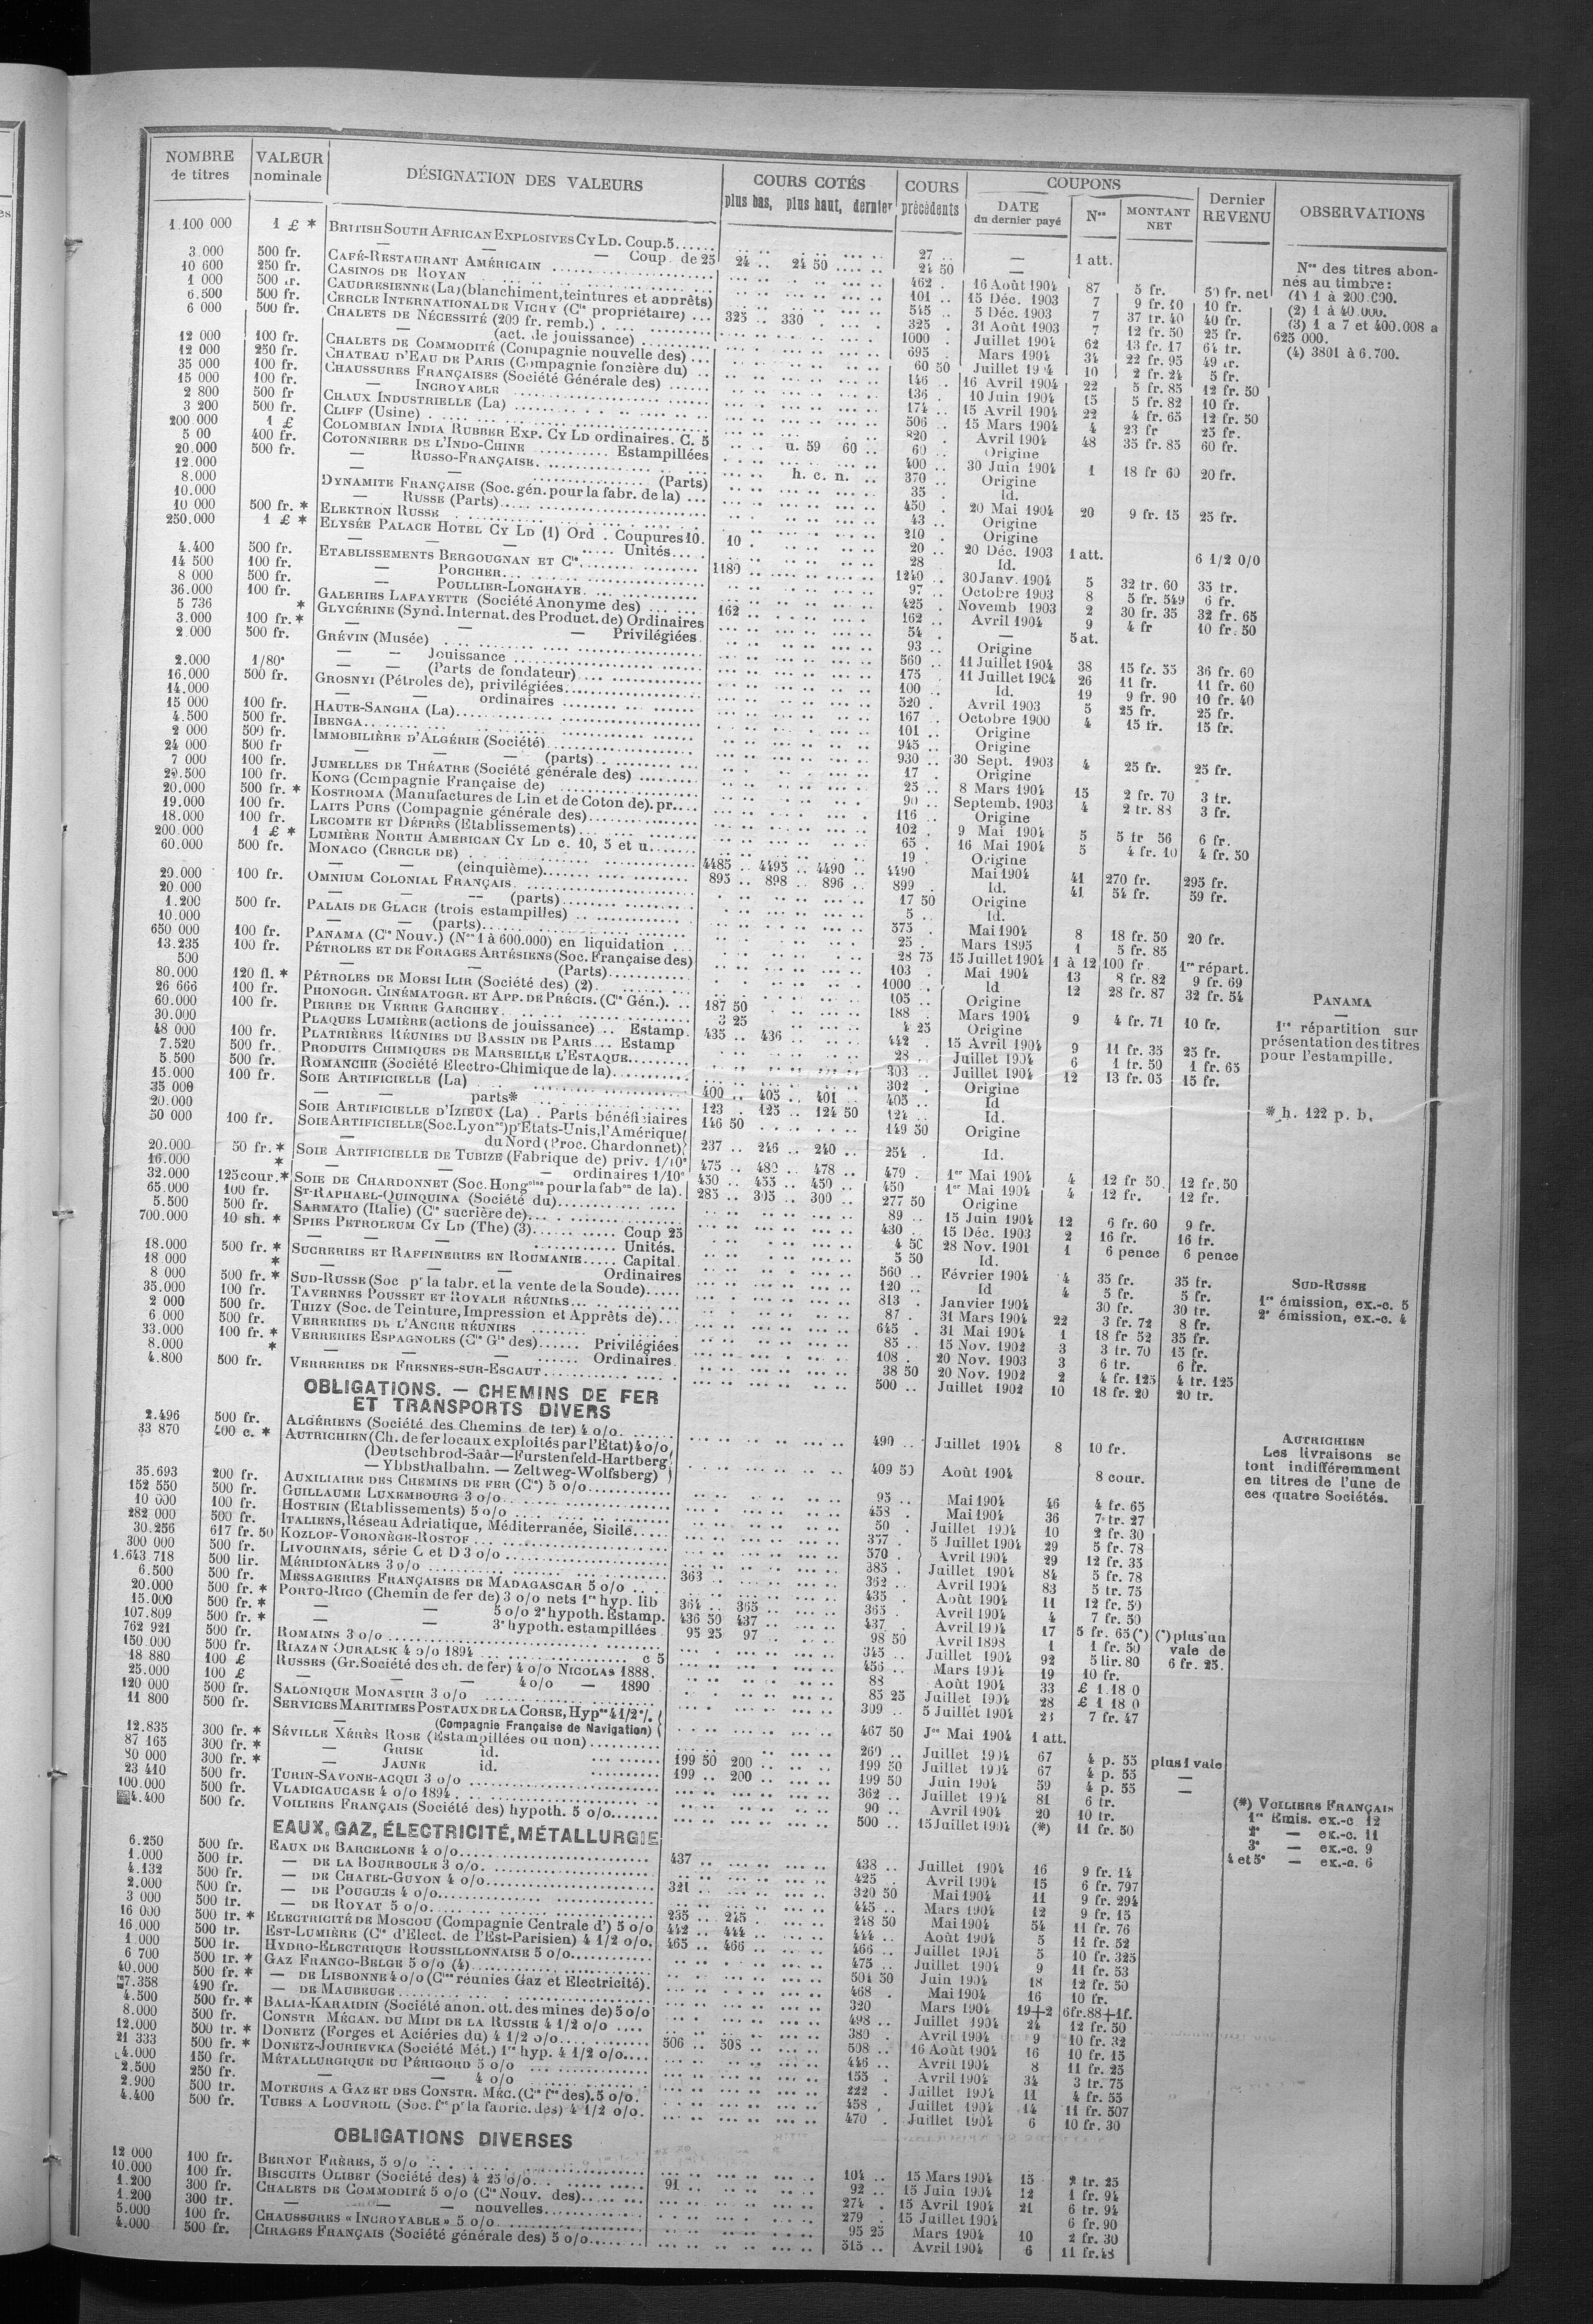 NOMBRE de titres | VALEUR nominale | DÉSIGNATION DES VALEURS | COURS COTÉS plus bas, plus haut, dernier | COURS précédents | COUPONS DATE du dernier payé | Nos | MONTANT NET | Dernier REVENU | OBSERVATIONS
1.100 000 1 £ * BRITISH SOUTH AFRICAN EXPLOSIVES CY LD. Coup. 5 27 — 1 att.
— — — Coup. de 25 24 .. 24 50 24 50 —
3.000 500 fr. CAFÉ-RESTAURANT AMÉRICAIN 462 16 Août 1904 87 5 fr. 50 fr. net
10 600 250 fr. CASINOS DE ROYAN 101 15 Déc. 1903 7 9 fr. 10 10 fr.
1 000 500 fr. CAUDRESIENNE (La) (blanchiment, teintures et apprêts) 545 5 Déc. 1903 7 37 fr. 40 40 fr.
6.500 500 fr. CERCLE INTERNATIONAL DE VICHY (Cie propriétaire) 325 .. 330 325 31 Août 1903 7 12 fr. 50 25 fr.
6 000 500 fr. CHALETS DE NÉCESSITÉ (200 fr. remb.) 1000 Juillet 1904 62 13 fr. 17 64 fr.
— (act. de jouissance) 695 Mars 1904 34 22 fr. 95 49 fr.
12 000 100 fr. CHALETS DE COMMODITÉ (Compagnie nouvelle des) 60 50 Juillet 1904 10 2 fr. 24 5 fr.
12 000 250 fr. CHATEAU D'EAU DE PARIS (Compagnie foncière du) 146 16 Avril 1904 22 5 fr. 85 12 fr. 50
35 000 100 fr. CHAUSSURES FRANÇAISES (Société Générale des) 136 10 Juin 1904 15 5 fr. 82 10 fr.
15 000 100 fr. — INCROYABLE 174 15 Avril 1904 22 4 fr. 65 12 fr. 50
2 800 500 fr CHAUX INDUSTRIELLE (La) 506 15 Mars 1904 4 23 fr 25 fr.
3 200 500 fr. CLIFF (Usine) 820 Avril 1904 48 35 fr. 85 60 fr.
200.000 1 £ COLOMBIAN INDIA RUBBER EXP. CY LD ordinaires. C. 5 u. 59 60 60 Origine
5 00 400 fr. COTONNIERE DE L'INDO-CHINE Estampillées 400 30 Juin 1904 1 18 fr 60 20 fr.
20.000 500 fr. — RUSSO-FRANÇAISE h. c. n. 370 Origine
12.000 — — (Parts) 35 Id.
8.000 DYNAMITE FRANÇAISE (Soc. gén. pour la fabr. de la) 450 20 Mai 1904 20 9 fr. 15 25 fr.
10.000 — RUSSE (Parts) 43 Origine
10 000 500 fr. * ELEKTRON RUSSE 210 Origine
250.000 1 £ * ELYSÉE PALACE HOTEL CY LD (1) Ord. Coupures 10 10 20 20 Déc. 1903 1 att. 6 1/2 0/0
— — — Unités 28 Id.
4.400 500 fr. ETABLISSEMENTS BERGOUGNAN ET Cie 1180 1240 30 Janv. 1904 5 32 fr. 60 35 fr.
14 500 100 fr. — PORCHER 97 Octobre 1903 8 5 fr. 549 6 fr.
8 000 500 fr. — POULLIER-LONGHAYE 425 Novemb 1903 2 30 fr. 35 32 fr. 65
36.000 100 fr. GALERIES LAFAYETTE (Société Anonyme des) 162 162 Avril 1904 9 4 fr 10 fr. 50
5 736 * GLYCÉRINE (Synd. Internat. des Product. de) Ordinaires 54 — 5 at.
3.000 100 fr. * — — — Privilégiées 93 Origine
2.000 500 fr. GRÉVIN (Musée) 560 11 Juillet 1904 38 15 fr. 35 36 fr. 60
— — Jouissance 175 11 Juillet 1904 26 11 fr. 11 fr. 60
2.000 1/80e — — (Parts de fondateur) 100 Id. 19 9 fr. 90 10 fr. 40
16.000 500 fr. GROSNYI (Pétroles de), privilégiées 520 Avril 1903 5 25 fr. 25 fr.
14.000 — — ordinaires 167 Octobre 1900 4 15 fr. 15 fr.
15 000 100 fr. HAUTE-SANGHA (La) 101 Origine
4.500 500 fr. IBENGA 945 Origine
2 000 500 fr. IMMOBILIÈRE D'ALGÉRIE (Société) 930 30 Sept. 1903 4 25 fr. 25 fr.
24 000 500 fr — — (parts) 17 Origine
7 000 100 fr. JUMELLES DE THÉATRE (Société générale des) 25 8 Mars 1904 15 2 fr. 70 3 fr.
20.500 100 fr. KONG (Compagnie Française de) 90 Septemb. 1903 4 2 fr. 88 3 fr.
20.000 500 fr. * KOSTROMA (Manufactures de Lin et de Coton de). pr. 116 Origine
19.000 100 fr. LAITS PURS (Compagnie générale des) 102 9 Mai 1904 5 5 fr 56 6 fr.
18.000 100 fr. LECOMTE ET DÉPRÈS (Etablissements) 65 16 Mai 1904 5 4 fr. 10 4 fr. 50
200.000 1 £ * LUMIÈRE NORTH AMERICAN CY LD c. 10, 5 et u 19 Origine
60.000 500 fr. MONACO (CERCLE DE) 4485 4495 4490 4490 Mai 1904 41 270 fr. 295 fr.
— — (cinquième) 895 898 896 899 Id. 41 54 fr. 59 fr.
20.000 100 fr. OMNIUM COLONIAL FRANÇAIS 17 50 Origine
20.000 — — (parts) 5 Id.
1.200 500 fr. PALAIS DE GLACE (trois estampilles) 575 Mai 1904 8 18 fr. 50 20 fr.
10.000 — — (parts) 25 Mars 1895 1 5 fr. 85
650 000 100 fr. PANAMA (Cie Nouv.) (Nos 1 à 600.000) en liquidation 28 75 15 Juillet 1904 1 à 12 100 fr 1re répart.
13.235 100 fr. PÉTROLES ET DE FORAGES ARTÉSIENS (Soc. Française des) 103 Mai 1904 13 8 fr. 82 9 fr. 69
500 — — (Parts) 1000 Id 12 28 fr. 87 32 fr. 54
80.000 120 fl. * PÉTROLES DE MOESI ILIR (Société des) (2) 105 Origine
26 666 100 fr. PHONOGR. CINÉMATOGR. ET APP. DE PRÉCIS. (Cie Gén.) 187 50 188 Mars 1904 9 4 fr. 71 10 fr.
60.000 100 fr. PIERRE DE VERRE GARCHEY 3 25 4 25 Origine
30.000 PLAQUES LUMIÈRE (actions de jouissance) Estamp. 435 436 442 15 Avril 1904 9 11 fr. 35 25 fr.
48 000 100 fr. PLATRIÈRES RÉUNIES DU BASSIN DE PARIS Estamp 28 Juillet 1904 6 1 fr. 50 1 fr. 65
7.520 500 fr. PRODUITS CHIMIQUES DE MARSEILLE L'ESTAQUE 303 Juillet 1904 12 13 fr. 05 15 fr.
5.500 500 fr. ROMANCHE (Société Electro-Chimique de la) 302 Origine
15.000 100 fr. SOIE ARTIFICIELLE (La) 400 405 401 405 Id
35 000 — — parts* 123 125 124 50 124 Id.
20.000 SOIE ARTIFICIELLE D'IZIEUX (La). Parts bénéficiaires 146 50 149 50 Origine
50 000 100 fr. SOIE ARTIFICIELLE (Soc. Lyonse) pr Etats-Unis, l'Amérique
— du Nord (Proc. Chardonnet) 237 246 240 254 Id.
20.000 50 fr. * SOIE ARTIFICIELLE DE TUBIZE (Fabrique de) priv. 1/10e 475 480 478 479 1er Mai 1904 4 12 fr 50 12 fr. 50
16.000 * — — — ordinaires 1/10e 450 455 450 450 1er Mai 1904 4 12 fr. 12 fr.
32.000 125 cour. * SOIE DE CHARDONNET (Soc. Hongoise pour la fabon de la) 285 305 300 277 50 Origine
65.000 100 fr. ST-RAPHAEL-QUINQUINA (Société du) 89 15 Juin 1904 12 6 fr. 60 9 fr.
5.500 500 fr. SARMATO (Italie) (Cie sucrière de) 430 15 Déc. 1903 2 16 fr. 16 fr.
700.000 10 sh. * SPIES PETROLEUM CY LD (The) (3) Coup 25 4 50 28 Nov. 1901 1 6 pence 6 pence
— — Unités. 5 50 Id.
18.000 500 fr. * SUCRERIES ET RAFFINERIES EN ROUMANIE Capital 560 Février 1904 4 35 fr. 35 fr.
18 000 * — — — Ordinaires 120 Id 4 5 fr. 5 fr.
8 000 500 fr. * SUD-RUSSE (Soc pr la fabr. et la vente de la Soude) 813 Janvier 1904 30 fr. 30 fr.
35.000 100 fr. TAVERNES POUSSET ET ROYALE RÉUNIES 87 31 Mars 1904 22 3 fr. 72 8 fr.
2 000 500 fr. THIZY (Soc. de Teinture, Impression et Apprêts de) 645 31 Mai 1904 1 18 fr 52 35 fr.
6 000 500 fr. VERRERIES DE L'ANCRE RÉUNIES 85 15 Nov. 1902 3 3 fr. 70 15 fr.
33.000 100 fr. * VERRERIES ESPAGNOLES (Cie Gle des) Privilégiées 108 20 Nov. 1903 3 6 fr. 6 fr.
8.000 * — — Ordinaires 38 50 20 Nov. 1902 2 4 fr. 125 4 fr. 125
4.800 500 fr. VERRERIES DE FRESNES-SUR-ESCAUT 500 Juillet 1902 10 18 fr. 20 20 fr.
OBLIGATIONS. — CHEMINS DE FER
ET TRANSPORTS DIVERS
2.496 500 fr. ALGÉRIENS (Société des Chemins de fer) 4 o/o 490 Juillet 1904 8 10 fr.
33 870 400 c. * AUTRICHIEN (Ch. de fer locaux exploités par l'Etat) 4 o/o
(Deutschbrod-Saàr—Furstenfeld-Hartberg
— Ybbsthalbahn. — Zeltweg-Wolfsberg) 409 50 Août 1904 8 cour.
35.693 200 fr. AUXILIAIRE DES CHEMINS DE FER (Cie) 5 o/o 95 Mai 1904 46 4 fr. 65
152 550 500 fr. GUILLAUME LUXEMBOURG 3 o/o 458 Mai 1904 36 7 fr. 27
10 000 100 fr. HOSTEIN (Etablissements) 5 o/o 50 Juillet 1904 10 2 fr. 30
282 000 500 fr. ITALIENS, Réseau Adriatique, Méditerranée, Sicile 357 5 Juillet 1904 29 5 fr. 78
30.256 617 fr. 50 KOZLOF-VORONÈGE-ROSTOF 570 Avril 1904 29 12 fr. 35
300 000 500 fr. LIVOURNAIS, série C et D 3 o/o 385 Juillet 1904 84 5 fr. 78
1.643 718 500 lir. MÉRIDIONALES 3 o/o 363 362 Avril 1904 83 5 fr. 75
6.500 500 fr. MESSAGERIES FRANÇAISES DE MADAGASCAR 5 o/o 435 Août 1904 11 12 fr. 50
20.000 500 fr. * PORTO-RICO (Chemin de fer de) 3 o/o nets 1re hyp. lib 364 365 365 Avril 1904 4 7 fr. 50
15.000 500 fr. * — — 5 o/o 2e hypoth. Estamp. 436 50 437 437 Avril 1904 17 5 fr. 65 (*) (*) plus un
107.809 500 fr. * — — 3e hypoth. estampillées 95 25 97 98 50 Avril 1898 1 1 fr. 50 vale de
762 921 500 fr. ROMAINS 3 o/o 345 Juillet 1904 92 5 lir. 80 6 fr. 25.
150.000 500 fr. RIAZAN OURALSK 4 o/o 1894 c 5 456 Mars 1904 19 10 fr.
18 880 100 £ RUSSES (Gr. Société des ch. de fer) 4 o/o NICOLAS 1888. 88 Août 1904 33 £ 1.18 0
25.000 100 £ — — 4 o/o — 1890 85 25 Juillet 1904 28 £ 1 18 0
120 000 500 fr. SALONIQUE MONASTIR 3 o/o 309 5 Juillet 1904 23 7 fr. 47
11 800 500 fr. SERVICES MARITIMES POSTAUX DE LA CORSE, Hypre 4 1/2 %.
— (Compagnie Française de Navigation) 467 50 Jer Mai 1904 1 att.
12.835 300 fr. * SÉVILLE XÉRÈS ROSE (Estampillées ou non) 260 Juillet 1904 67 4 p. 55 plus 1 vale
87 165 300 fr. * — GRISE id. 199 50 200 199 50 Juillet 1904 67 4 p. 55 —
80 000 300 fr. * — JAUNE id. 199 200 199 50 Juin 1904 59 4 p. 55 —
23 410 500 fr. TURIN-SAVONE-ACQUI 3 o/o 362 Juillet 1904 81 6 fr.
100.000 500 fr. VLADICAUCASE 4 o/o 1894 90 Avril 1904 20 10 fr.
4.400 500 fr. VOILIERS FRANÇAIS (Société des) hypoth. 5 o/o 500 15 Juillet 1904 (*) 11 fr. 50
EAUX, GAZ, ÉLECTRICITÉ, MÉTALLURGIE
6.250 500 fr. EAUX DE BARCELONE 4 o/o 437 438 Juillet 1904 16 9 fr. 14
1.000 500 fr. — DE LA BOURBOULE 3 o/o 425 Avril 1904 15 6 fr. 797
4.132 500 fr. — DE CHATEL-GUYON 4 o/o 321 320 50 Mai 1904 11 9 fr. 294
2.000 500 fr. — DE POUGUES 4 o/o 445 Mars 1904 12 9 fr. 15
3 000 500 fr. — DE ROYAT 5 o/o 235 245 248 50 Mai 1904 54 11 fr. 76
16 000 500 fr. * ELECTRICITÉ DE MOSCOU (Compagnie Centrale d') 5 o/o 442 444 444 Août 1904 5 11 fr. 52
16.000 500 fr. EST-LUMIÈRE (Cie d'Elect. de l'Est-Parisien) 4 1/2 o/o. 465 466 466 Juillet 1904 5 10 fr. 325
1.000 500 fr. HYDRO-ELECTRIQUE ROUSSILLONNAISE 5 o/o 475 Juillet 1904 9 11 fr. 53
6 700 500 fr. * GAZ FRANCO-BELGE 5 o/o (4) 501 50 Juin 1904 18 12 fr. 50
40.000 500 fr. * — DE LISBONNE 4 o/o (Cies réunies Gaz et Electricité). 468 Mai 1904 16 10 fr.
7.358 490 fr. — DE MAUBEUGE 320 Mars 1904 19+2 6 fr. 88+1f.
4.500 500 fr. * BALIA-KARAIDIN (Société anon. ott. des mines de) 5 o/o 498 Juillet 1904 24 12 fr. 50
8.000 500 fr. CONSTR MÉCAN. DU MIDI DE LA RUSSIE 4 1/2 o/o 380 Avril 1904 9 10 fr. 32
12.000 500 fr. * DONETZ (Forges et Aciéries du) 4 1/2 o/o 506 508 508 16 Août 1904 16 10 fr. 15
21 333 500 fr. * DONETZ-JOURIEVKA (Société Mét.) 1re hyp. 4 1/2 o/o 446 Avril 1904 8 11 fr. 25
4.000 150 fr. MÉTALLURGIQUE DU PÉRIGORD 5 o/o 155 Avril 1904 34 3 fr. 75
2.500 250 fr. — — 4 o/o 222 Juillet 1904 11 4 fr. 55
2.900 500 fr. MOTEURS A GAZ ET DES CONSTR. MÉC. (Cie fse des). 5 o/o. 458 Juillet 1904 14 11 fr. 507
4.400 500 fr. TUBES A LOUVROIL (Soc. fse pr la fabric. des) 4 1/2 o/o. 470 Juillet 1904 6 10 fr. 30
OBLIGATIONS DIVERSES
12 000 100 fr. BERNOT FRÈRES, 5 o/o 104 15 Mars 1904 15 2 fr. 25
10.000 100 fr. BISCUITS OLIBET (Société des) 4 25 o/o 91 92 15 Juin 1904 12 1 fr. 94
1.200 300 fr. CHALETS DE COMMODITÉ 5 o/o (Cie Nouv. des) 274 15 Avril 1904 21 6 fr. 94
1.200 300 fr. — — — nouvelles 279 15 Juillet 1904 6 fr. 90
5.000 100 fr. CHAUSSURES « INCROYABLE » 5 o/o 95 25 Mars 1904 10 2 fr. 30
4.000 500 fr. CIRAGES FRANÇAIS (Société générale des) 5 o/o 515 Avril 1904 6 11 fr. 48
Nos des titres abon-
nés au timbre:
(1) 1 à 200.000.
(2) 1 à 40.000.
(3) 1 a 7 et 400.008 a
625 000.
(4) 3801 à 6.700.
PANAMA
—
1re répartition sur
présentation des titres
pour l'estampille.
* h. 122 p. b.
SUD-RUSSE
1re émission, ex.-c. 5
2e émission, ex.-c. 4
AUTRICHIEN
Les livraisons se
font indifféremment
en titres de l'une de
ces quatre Sociétés.
(*) VOILIERS FRANÇAIS
1re Emis. ex.-c 12
2e — ex.-c. 11
3e — ex.-c. 9
4 et 5e — ex.-c. 6